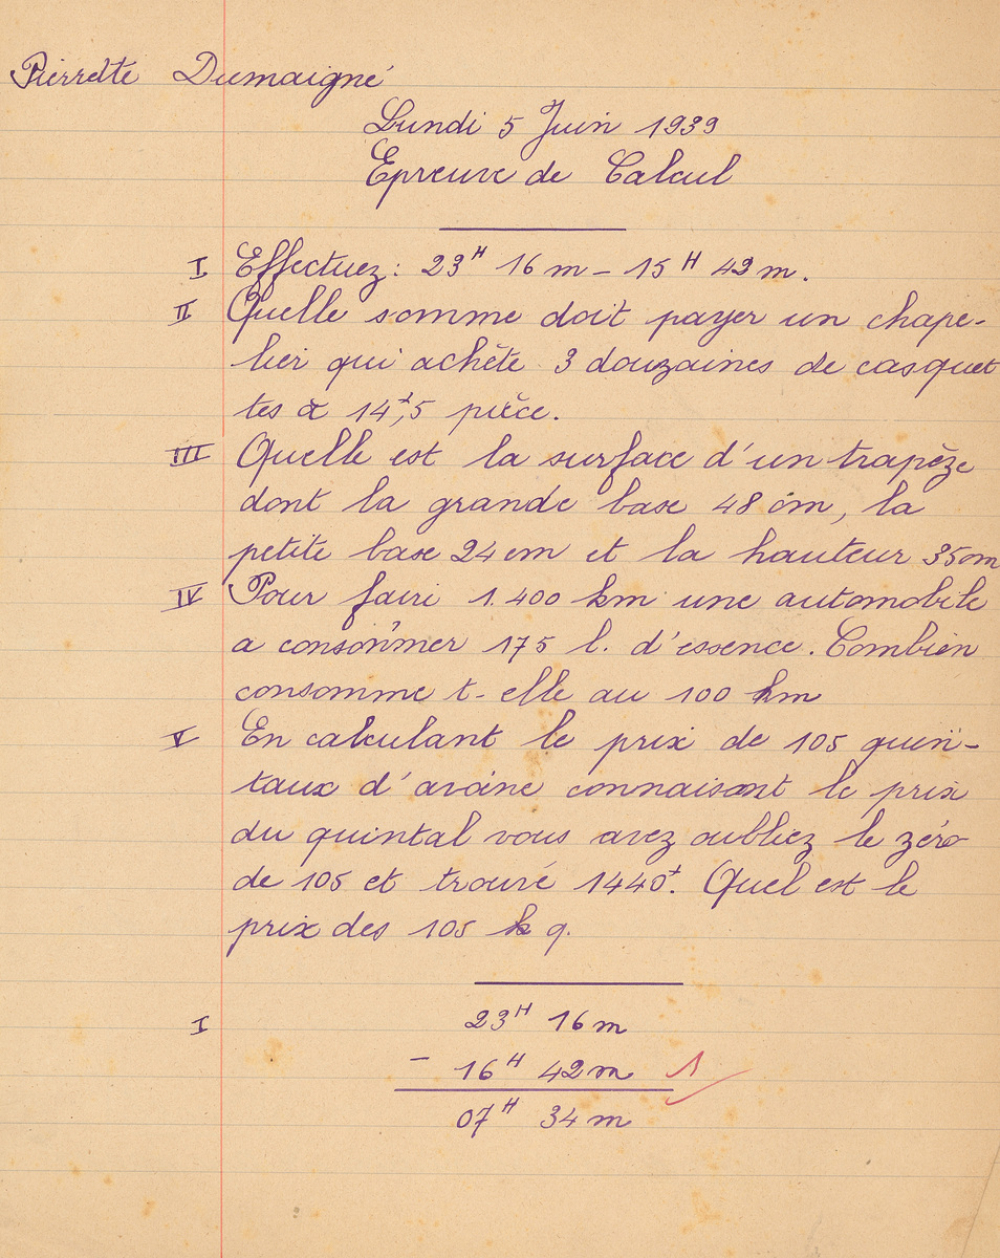 Pierrette Dumaigné
Lundi 5 Juin 1939
Epreuve de Calcul
I Effectuez : 23H 16 m - 15 H 42 m.
II Quelle somme doit payer un chape-
lier qui achète 3 douzaines de casquet
tes à 14f,5 pièce.
III Quelle est la surface d'un trapèze
dont la grande base 48 cm, la
petite base 24 cm et la hauteur 35 cm
IV Pour faire 1.400 km une automobile
a consommer 175 l. d'essence. Combien
consomme t-elle au 100 km
V En calculant le prix de 105 quin-
taux d'avoine connaisant le prix
du quintal vous avez oubliez le zéro
de 105 et trouvé 1440f. Quel est le
prix des 105 k q.
I 23H 16 m
- 16 H 42 m 1
07 H 34 m